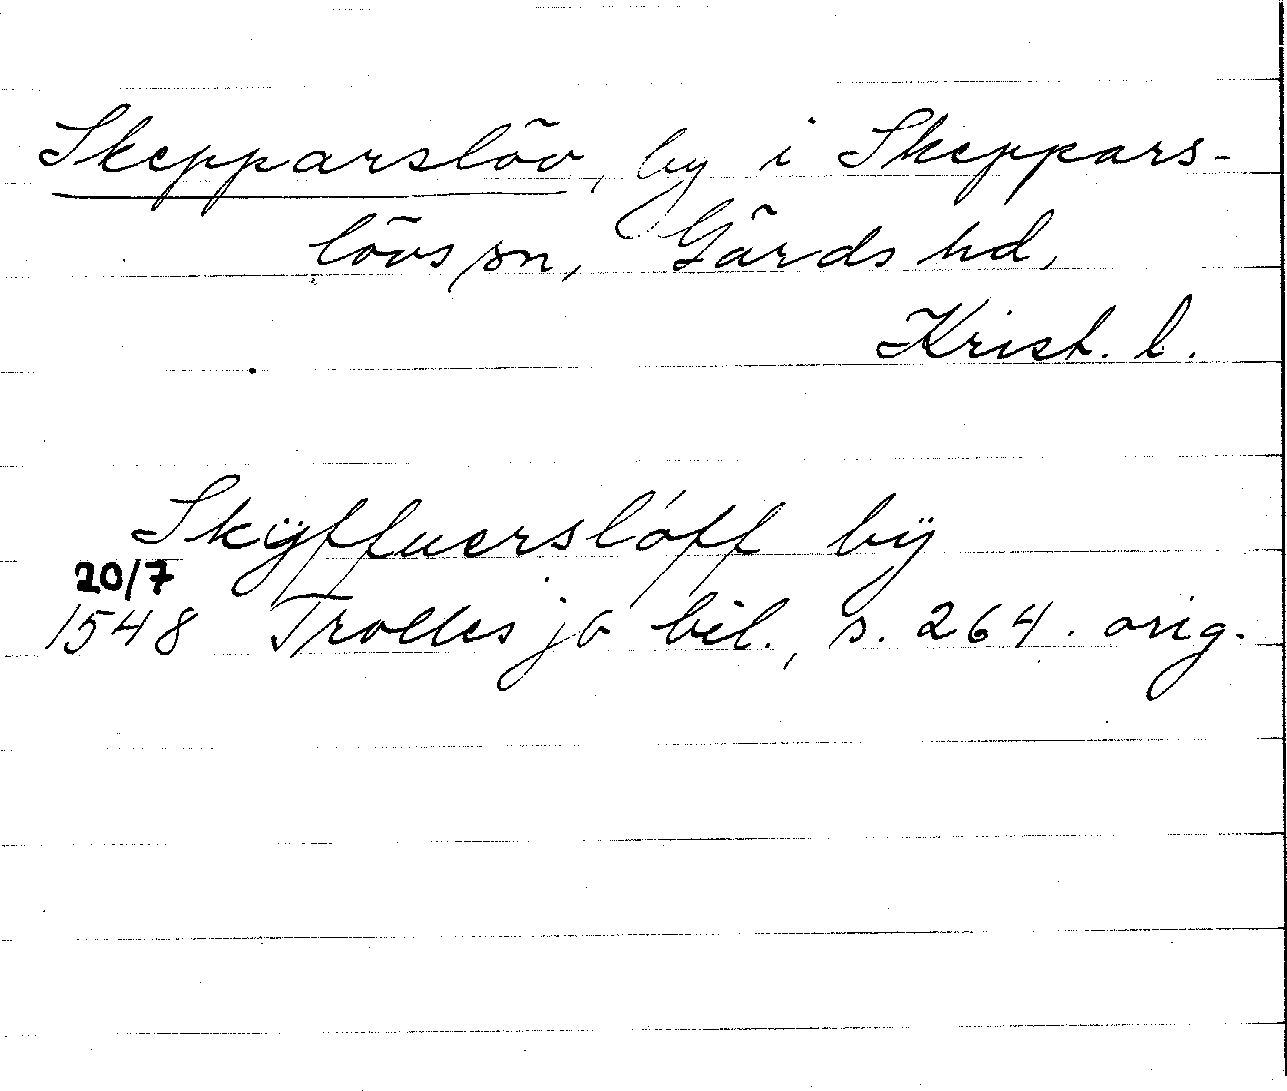 Skepparslöv, by i Skeppars-
lövs sn, Gärds hd,
Krist. l.
Skÿffuerslóff bÿ
20/7
1548 Trolles jb bil., s. 264. orig.